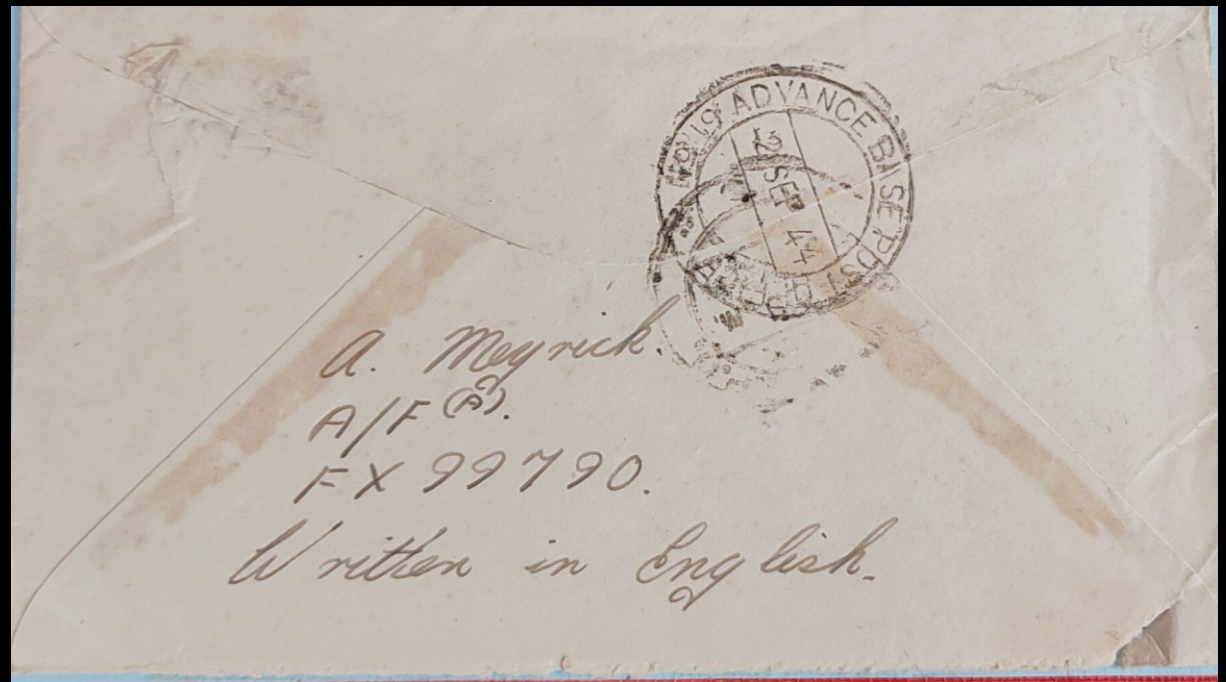 19 ADVANCE BASE POST OFFICE
12 SEP 44
A. Meyrick.
A/F (A).
FX 99790.
Written in English.